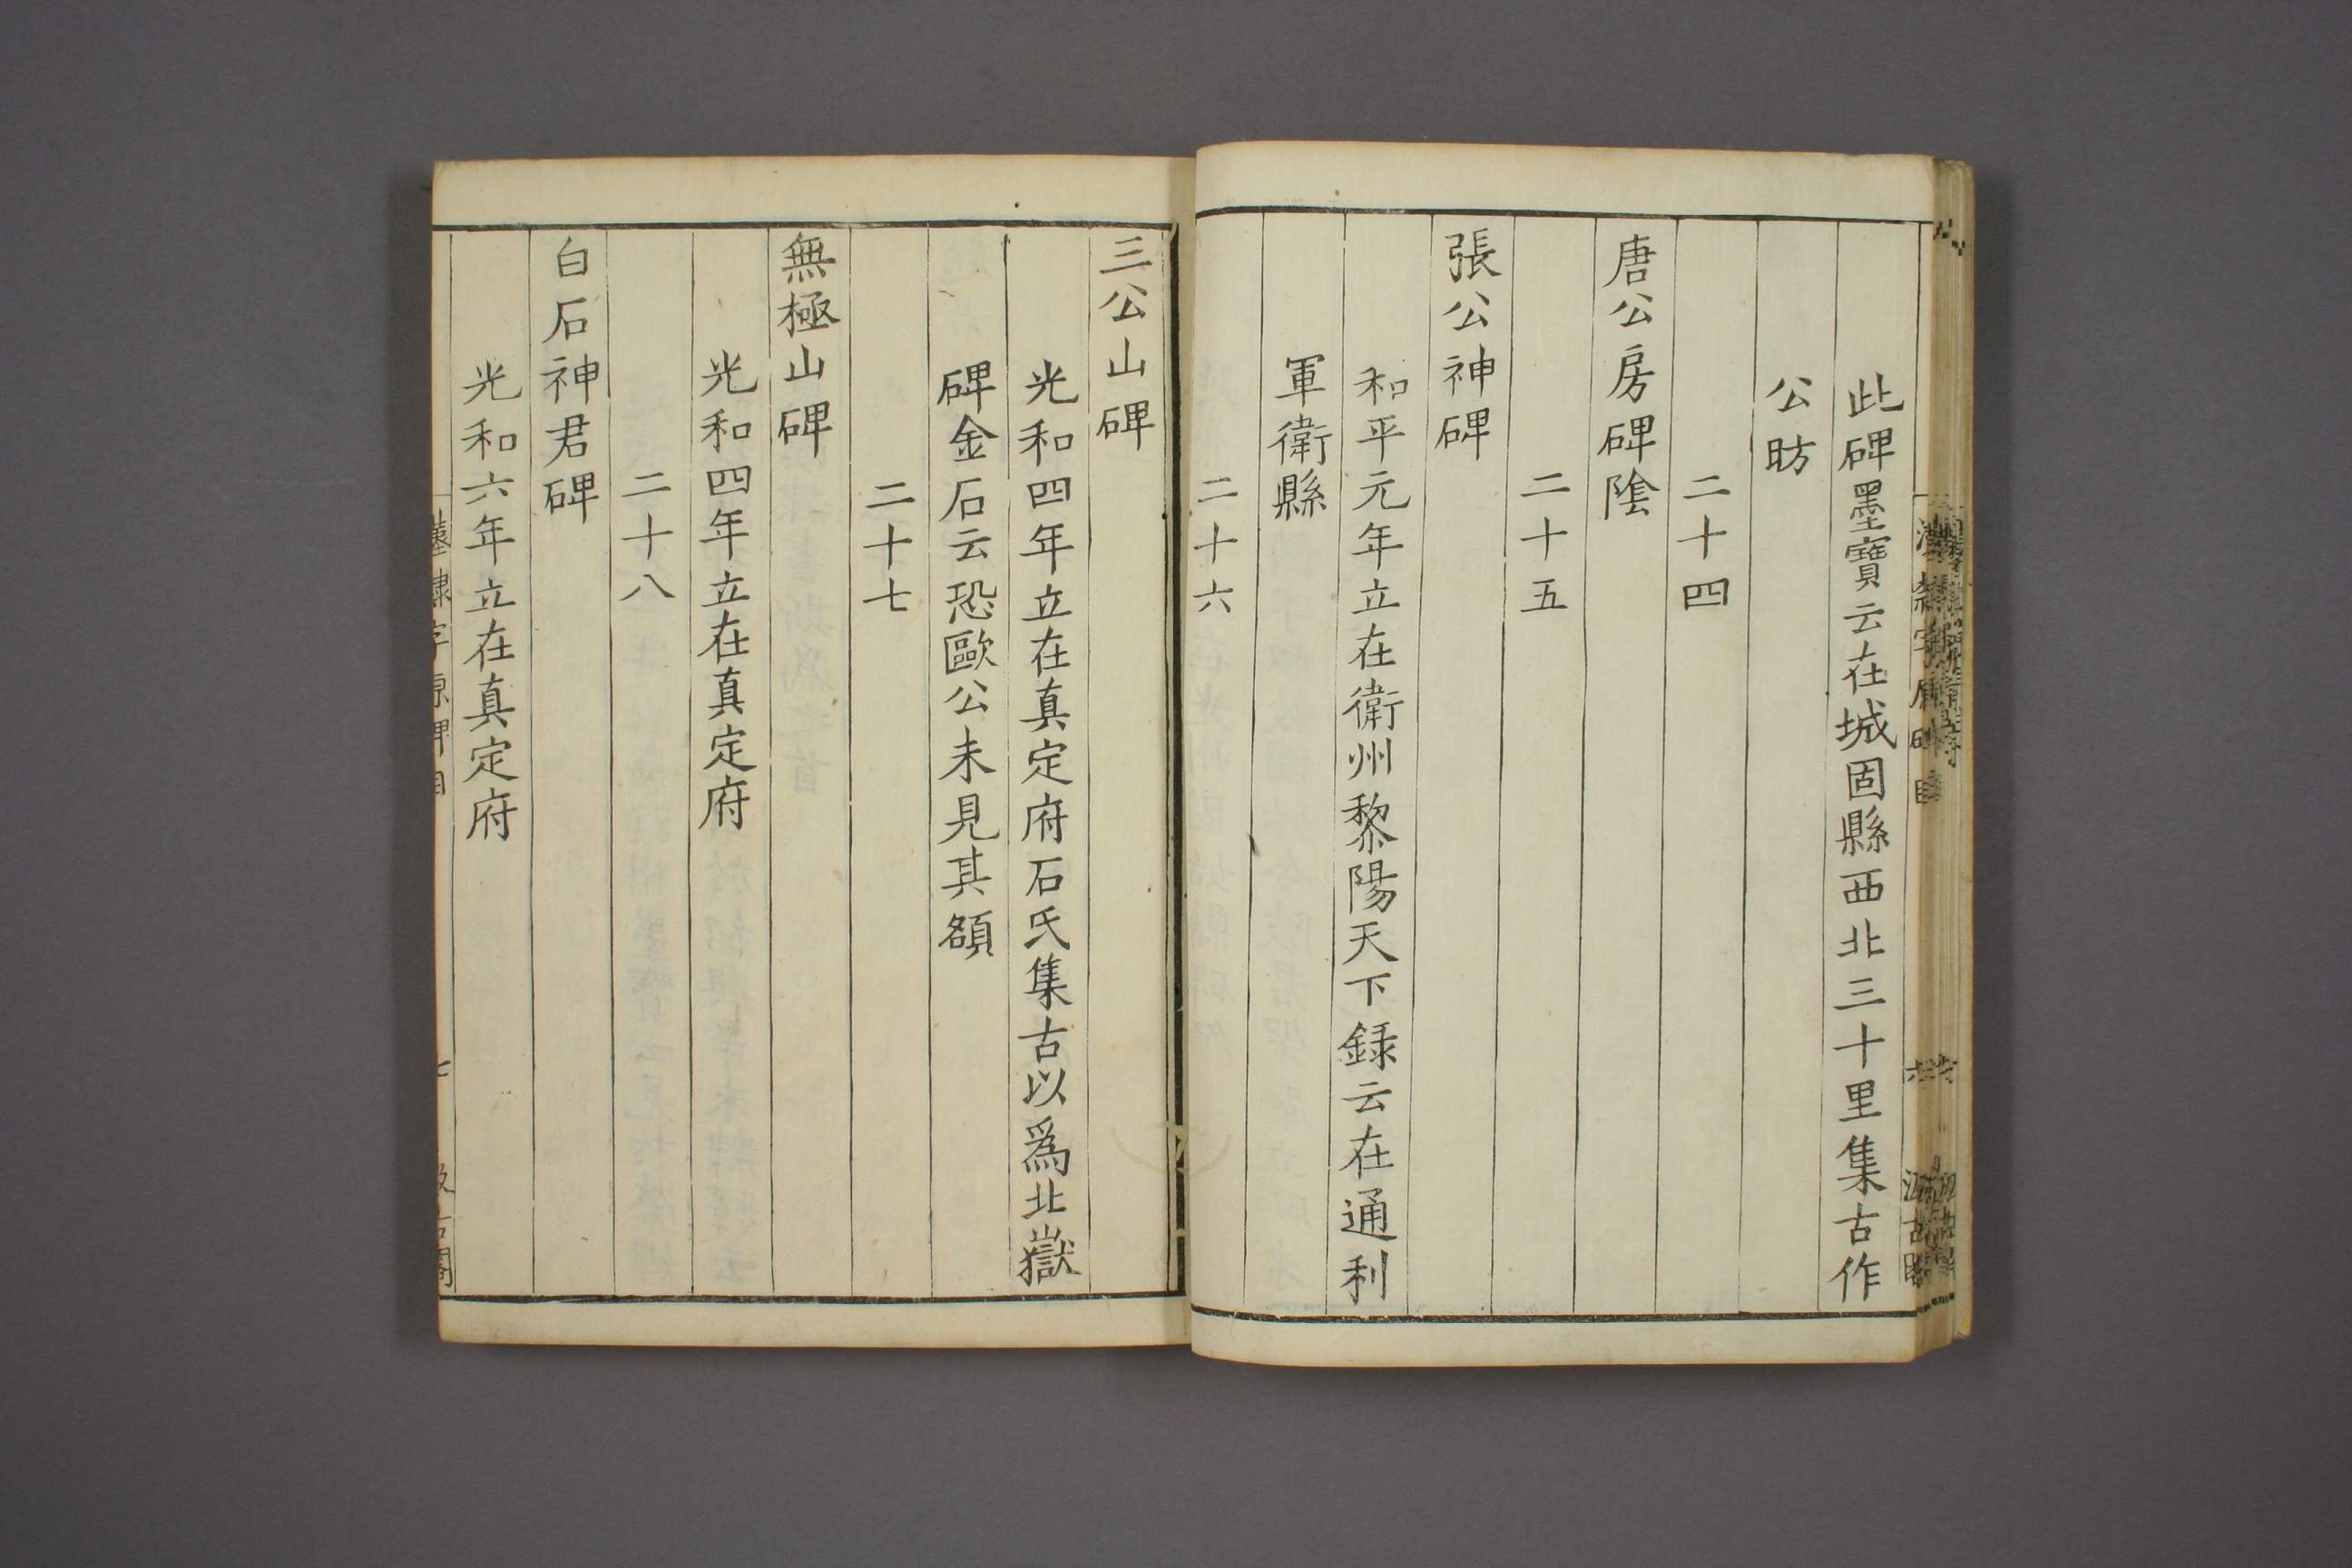 此碑墨寶云在城固縣西北三十里集古作
公昉
二十四
唐公房碑陰
二十五
張公神碑
和平元年立在衛州黎陽天下録云在通利
軍衛縣
二十六
三公山碑
光和四年立在真定府石氏集古以爲北嶽
碑金石云恐歐公未見其額
二十七
無極山碑
光和四年立在真定府
二十八
白石神君碑
光和六年立在真定府
隸字原碑目
七
汲古閣